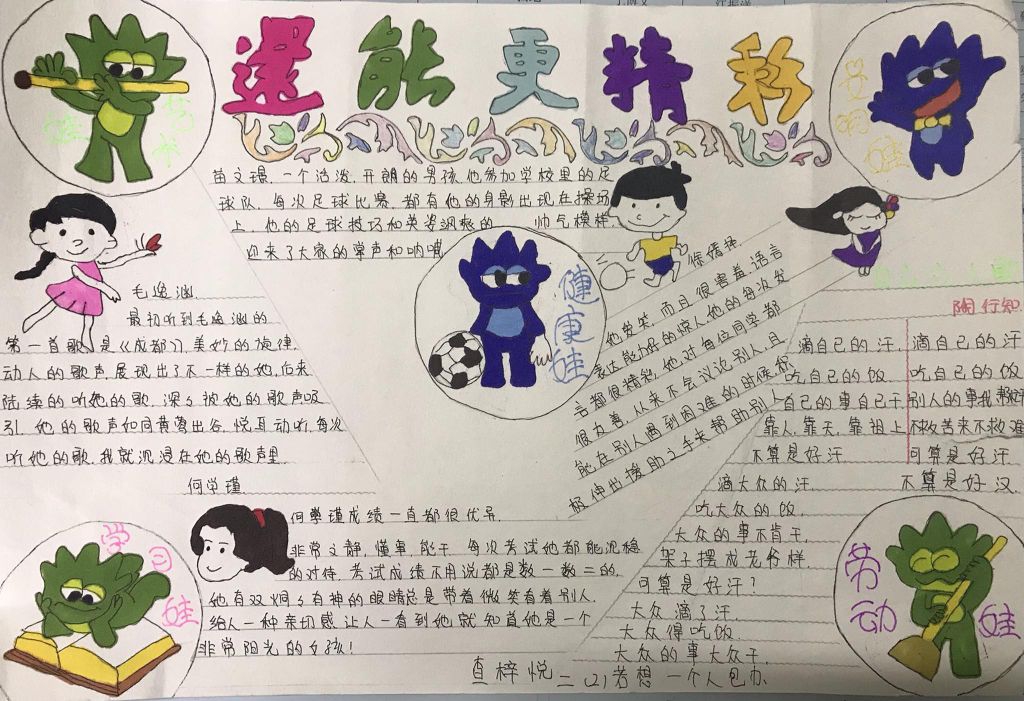 还能更精彩
艺术
娃
文明
娃
苗文璟,一个活泼、开朗的男孩,他参加学校里的足
球队,每次足球比赛,都有他的身影出现在操场
上,他的足球技巧和英姿飒爽的 帅气模样,
迎来了大家的掌声和呐喊
毛逸涵
最初听到毛逸涵的
第一首歌是《成都》,美妙的旋律,
动人的歌声,展现出了不一样的她,后来
陆续的听她的歌,深深被她的歌声吸
引,她的歌声如同黄莺出谷,悦耳动听,每次
听她的歌,我就沉浸在她的歌声里
何学瑾
健康娃
他爱笑,而且很害羞,语言
表达能力好的惊人,他的每次发
言都很精彩,他对每位同学都
很友善,从来不会议论别人,且
能在别人遇到困难的时候积
极伸出援助之手来帮助别人
陶行知
滴自己的汗,
吃自己的饭
自己的事自己干
靠人,靠天,靠祖上
不算是好汗
滴自己的汗
吃自己的饭
别人的事我帮忙
不救苦来不救难
可算是好汗
不算是好汉
滴大众的汗
吃大众的饭,
大众的事不肯干
架子摆成老爷样
可算是好汗?
大众滴了汗
大众得吃饭
大众的事大众干
若想一个人包办
何学瑾成绩一直都很优异
非常文静,懂事,能干,每次考试他都能沉稳
的对待,考试成绩不用说都是数一数二的,
她有双炯炯有神的眼睛总是带着微笑看着别人,
给人一种亲切感,让人一看到她就知道她是一个
非常阳光的女孩!
查梓悦 二(2)
学习
娃
劳动
娃